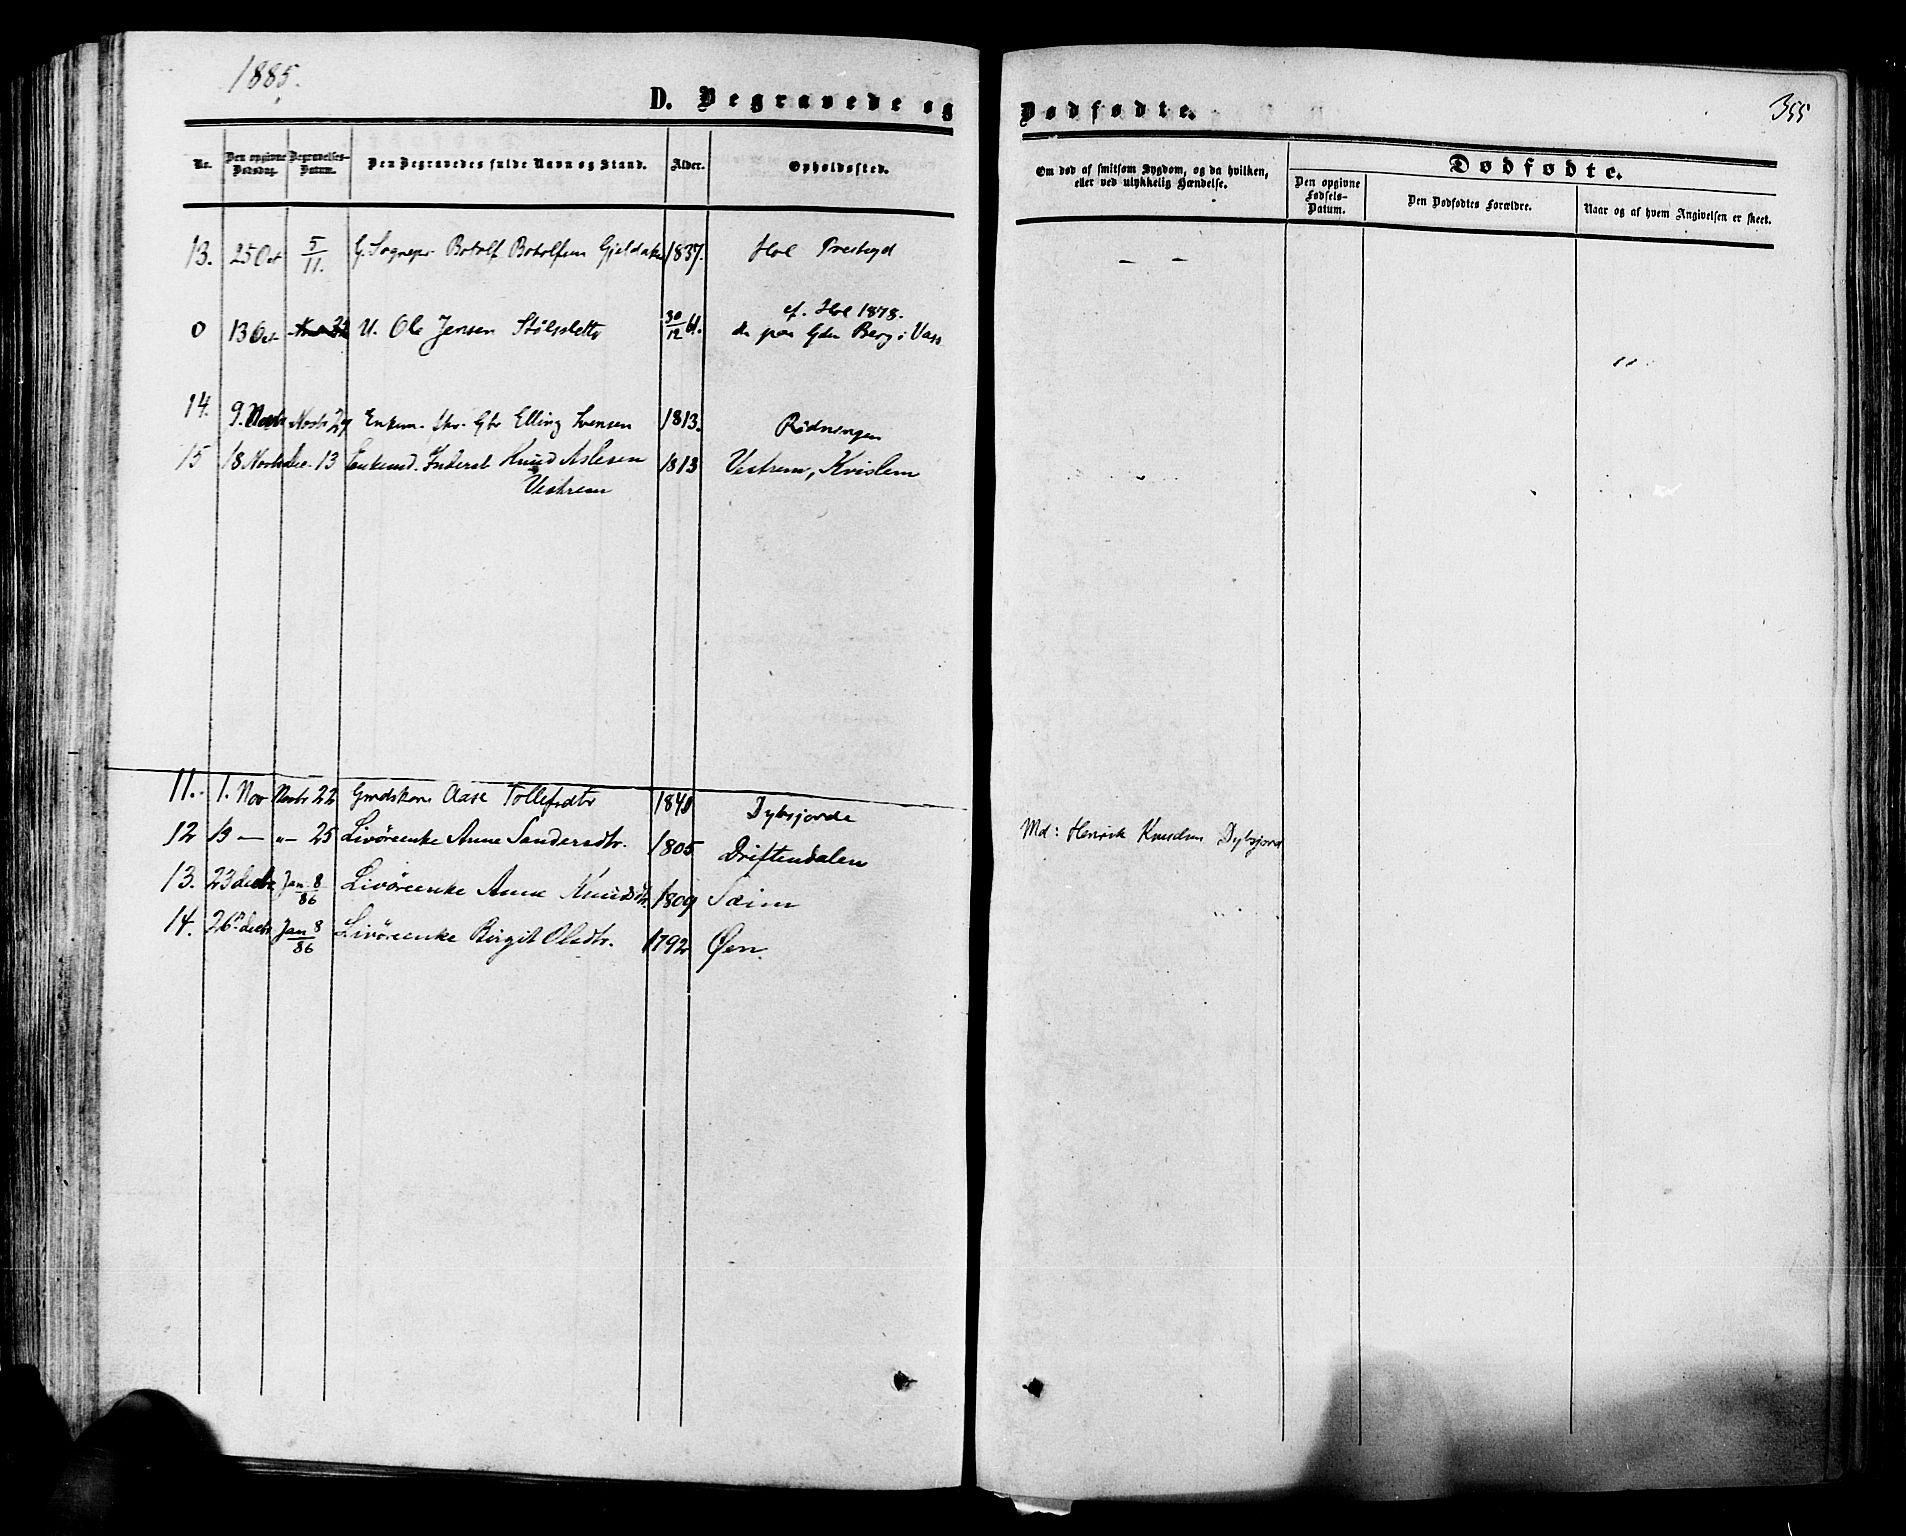 1885.
D. Begravede og Dødfødte.
355
Nr.
Den opgivne Dødsdag.
Begravelses-Datum.
Den Begravedes fulde Navn og Stand.
Alder.
Opholdssted.
Om død af smitsom Sygdom, og da hvilken, eller ved ulykkelig Hændelse.
Dødfødte.
Den opgivne Fødsels-Datum.
Den Dødfødtes Forældre.
Naar og af hvem Angivelsen er skeet.
13. 25 Oct 5/11. Botolf Botolfsen 1837. Hol Prestegd — —
cf. Hol 1878.
0 13 Oct U. Ole Jensen Stølsslette 30/12 61. Berg i Vass
14. 9. Novbr 27 Elling Svensen 1813. Rødningen
15 18 Novbr dec. 13 Enkemd. Inderst Knud Aslesen 1813 Vestrem, Kvislem
Vestrem
11. 1. Nov Novbr 22 Gmdskone Aase Tollefsdtr 1840 Dybsjorde
Md: Henrik Knudsen Dybsjord
12 13 — "— 25 Livøreenke Anne Sandersdtr. 1805 Driftendalen
13. 23 decbr Jan 8/86 Livøreenke Anne Knudsdtr. 1809
14. 26 decbr Jan 8/86 Livøreenke Birgit Olsdtr. 1792 Øen.